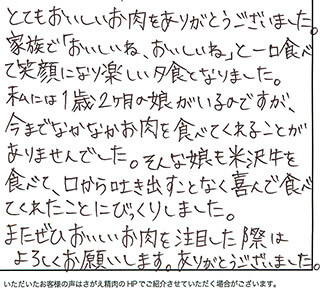 とてもおいしいお肉をありがとうございました。
家族で「おいしいね、おいしいね」と一口食べ
て笑顔になり楽しい夕食となりました。
私には1歳2ヶ月の娘がいるのですが、
今までなかなかお肉を食べてくれることが
ありませんでした。そんな娘も米沢牛を
食べて、口から吐き出すことなく喜んで食べ
てくれたことにびっくりしました。
またぜひおいしいお肉を注目した際は
よろしくお願いします。ありがとうございました。
いただいたお客様の声はさがえ精肉のHPでご紹介させていただく場合がございます。